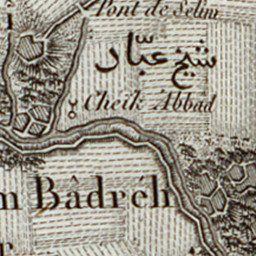 Pont de Selim
شيخ عبار
Cheik Abbad
Bâdréh